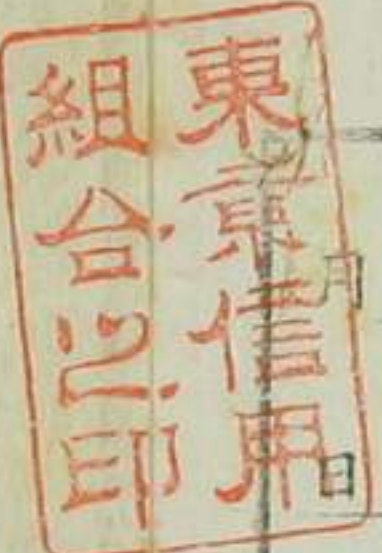 東京信用
組合之印
月 日